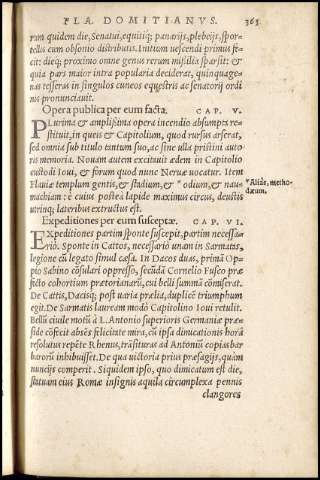 FLA. DOMITIANVS. 363
rum quidem die, Senatui, equitiq; panarijs, plebeijs, spor-
tellis cum obsonio distributis. Initium uescendi primus fe-
cit: dieq; proximo omne genus rerum missilia sparsit: &
quia pars maior intra popularia deciderat, quinquage-
nas tesseras in singulos cuneos equestris ac senatorij ordi
nis pronunciauit.
Opera publica per eum facta. CAP. V.
PLurima & amplissima opera incendio absumpta re-
stituit, in queis & Capitolium, quod rursus arserat,
sed omnia sub titulo tantum suo, ac sine ulla pristini auto
ris memoria. Nouam autem excitauit ædem in Capitolio
custodi Ioui, & forum quod nunc Neruæ uocatur. Item
Flauiæ templum gentis, & stadium, & * odium, & nau-
machiam: è cuius postea lapide maximus circus, deustis
utrinq; lateribus extructus est.
*Aliâs, metho-
dæum.
Expeditiones per eum susceptæ. CAP. VI.
EXpeditiones partim sponte suscepit, partim necessa-
riò. Sponte in Cattos, necessariò unam in Sarmatas,
legione cũ legato simul cæsa. In Dacos duas, primã Op-
pio Sabino cõsulari oppresso, secũdã Cornelio Fusco præ
fecto cohortium prætorianarũ, cui belli summã cõmiserat.
De Cattis, Dacisq; post uaria prælia, duplicẽ triumphum
egit. De Sarmatis lauream modò Capitolino Ioui retulit.
Bellũ ciuile motũ à L. Antonio superioris Germaniæ præ-
side cõfecit absẽs felicitate mira, cũ ipsa dimicationis horâ
resolutus repẽte Rhenus, trãsituras ad Antoniũ copias bar
barorũ inhibuisset. De qua uictoria prius præsagijs, quàm
nuncijs comperit. Siquidem ipso, quo dimicatum est die,
statuam eius Romæ insignis aquila circumplexa pennis
clangores